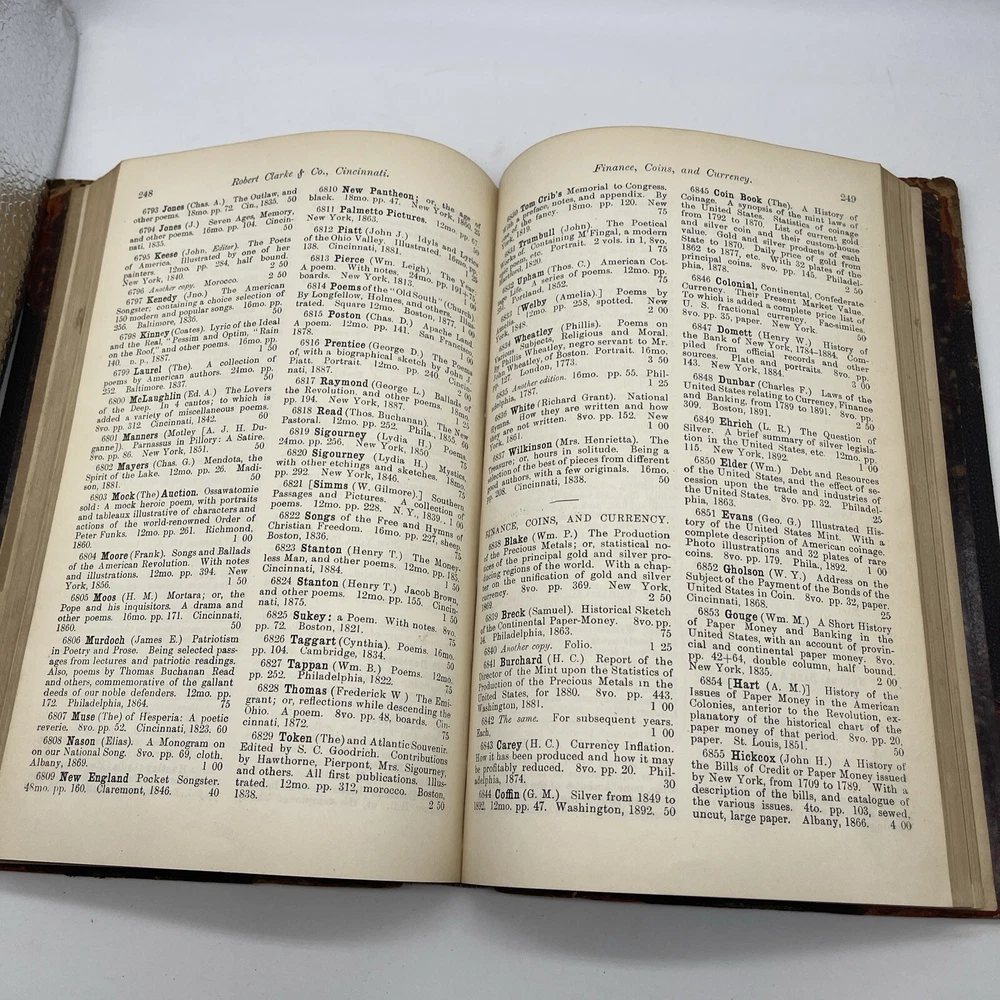 248
Robert Clarke & Co., Cincinnati.
6793 Jones (Chas. A.) The Outlaw, and
other poems. 18mo. pp. 72. Cin., 1835. 50
6794 Jones (J.) Seven Ages, Memory,
and other poems. 16mo. pp. 104. Cincin-
nati. 1835. 50
6795 Keese (John, Editor). The Poets
of America. Illustrated by one of her
painters. 12mo. pp. 284, half bound.
New York, 1840. 2 50
6796 Another copy. Morocco. 2 50
6797 Kenedy (Jno.) The American
Songster; containing a choice selection of
150 modern and popular songs. 16mo. pp.
256. Baltimore, 1836. 50
6798 Kinney (Coates). Lyric of the Ideal
and the Real, "Pessim and Optim," "Rain
on the Roof," and other poems. 16mo. pp.
140. n. p., 1887. 1 50
6799 Laurel (The). A collection of
poems by American authors. 24mo. pp.
252. Baltimore. 1837.
6800 McLaughlin (Ed. A.) The Lovers
of the Deep. In 4 cantos; to which is
added a variety of miscellaneous poems.
8vo. pp. 312. Cincinnati, 1842. 60
6801 Manners (Motley [A. J. H. Du-
ganne]). Parnassus in Pillory: A Satire.
8vo. pp. 86. New York, 1851. 50
6802 Mayers (Chas. G.) Mendota, the
Spirit of the Lake. 12mo. pp. 26. Madi-
son, 1881. 50
6803 Mock (The) Auction. Ossawatomie
sold: A mock heroic poem, with portraits
and tableaux illustrative of characters and
actions of the world-renowned Order of
Peter Funks. 12mo. pp. 261. Richmond,
1860. 1 00
6804 Moore (Frank). Songs and Ballads
of the American Revolution. With notes
and illustrations. 12mo. pp. 394. New
York, 1856. 1 50
6805 Moos (H. M.) Mortara; or, the
Pope and his inquisitors. A drama and
other poems. 16mo. pp. 171. Cincinnati,
1860. 50
6806 Murdoch (James E.) Patriotism
in Poetry and Prose. Being selected pass-
ages from lectures and patriotic readings.
Also, poems by Thomas Buchanan Read
and others, commemorative of the gallant
deeds of our noble defenders. 12mo. pp.
172. Philadelphia, 1864. 75
6807 Muse (The) of Hesperia: A poetic
reverie. 8vo. pp. 52. Cincinnati, 1823. 60
6808 Nason (Elias). A Monogram on
our National Song. 8vo. pp. 69, cloth.
Albany, 1869. 1 00
6809 New England Pocket Songster.
48mo. pp. 160. Claremont, 1846. 40
6810 New Pantheon; or, the age of
black. 18mo. pp. 47. New York, 1860. 25
6811 Palmetto Pictures. 12mo. pp.
New York, 1863.
6812 Piatt (John J.) Idyls and Lyrics
of the Ohio Valley. Illustrated. 16mo. pp.
Cincinnati, 1881.
6813 Pierce (Wm. Leigh). The Year.
A poem. With notes. 24mo. pp.
boards. New York, 1813. 75
6814 Poems of the "Old South" (Church)
By Longfellow, Holmes, and others. Illus-
trated. Square 12mo. Boston, 1877.
6815 Poston (Chas. D.) Apache Land
A poem. 12mo. pp. 141. San Francisco,
1878. 1 00
6816 Prentice (George D.) The Poems
of, with a biographical sketch by John J.
Piatt. Portrait. 12mo. pp. 240. Cincin-
nati, 1887. 2 00
6817 Raymond (George L.) Ballads of
the Revolution, and other poems. 18mo.
pp. 194. New York, 1887.
6818 Read (Thos. Buchanan). The New
Pastoral. 12mo. pp. 252. Phila., 1855.
6819 Sigourney (Lydia H.) Poems.
24mo. pp. 256. New York, 1850 75
6820 Sigourney (Lydia H.) Mystics,
with other etchings and sketches. 18mo.
pp. 292. New York, 1846. 75
6821 [Simms (W. Gilmore).] Southern
Passages and Pictures. A collection of
poems. 12mo. pp. 228. N. Y., 1839. 1 00
6822 Songs of the Free and Hymns of
Christian Freedom. 16mo. pp. 227, sheep.
Boston, 1836.
6823 Stanton (Henry T.) The Money-
less Man, and other poems. 12mo. pp. 185.
Cincinnati, 1884. 1 50
6824 Stanton (Henry T.) Jacob Brown,
and other poems. 12mo. pp. 155. Cincin-
nati, 1875. 1 50
6825 Sukey: a Poem. With notes. 8vo.
pp. 72. Boston, 1821.
6826 Taggart (Cynthia). Poems. 16mo.
pp. 104. Cambridge, 1834. 50
6827 Tappan (Wm. B.) Poems. 12mo.
pp. 252. Philadelphia, 1822. 75
6828 Thomas (Frederick W ) The Emi-
grant; or, reflections while descending the
Ohio. A poem. 8vo. pp. 48, boards. Cin-
cinnati, 1872. 75
6829 Token (The) and Atlantic Souvenir.
Edited by S. C. Goodrich. Contributions
by Hawthorne, Pierpont, Mrs. Sigourney,
and others. All first publications. Illus-
trated. 12mo. pp. 312, morocco. Boston,
1838. 2 50
Finance, Coins, and Currency.
249
Tom Crib's Memorial to Congress.
a preface, notes, and appendix. By
of the fancy. 18mo. pp. 120. New
York, 1819. 75
Trumbull (John). The Poetical
Works of. Containing M'Fingal, a modern
etc. Portrait. 2 vols. in 1, 8vo.
Hartford, 1820. 1 75
Upham (Thos. C.) American Cot-
A series of poems. 12mo. pp.
Portland, 1852. 75
[Welby (Amelia).] Poems by
Amelia. 12mo. pp. 258, spotted. New
York, 1848. 2 00
6834 Wheatley (Phillis). Poems on
Various Subjects, Religious and Moral.
By Phillis Wheatley, negro servant to Mr.
Wheatley, of Boston. Portrait. 16mo.
pp. 127. London, 1773. 3 50
6835 Another edition. 16mo. pp. 55. Phil-
adelphia, 1787. 1 25
6836 White (Richard Grant). National
Hymns. How they are written and how
they are not written. 8vo. pp. 152. New
York, 1861. 1 00
6837 Wilkinson (Mrs. Henrietta). The
Treasure; or, hours in solitude. Being a
collection of the best of pieces from different
good authors, with a few originals. 16mo.
pp. 208. Cincinnati, 1838. 50
FINANCE, COINS, AND CURRENCY.
6838 Blake (Wm. P.) The Production
of the Precious Metals; or, statistical no-
tices of the principal gold and silver pro-
ducing regions of the world. With a chap-
ter on the unification of gold and silver
currency. 8vo. pp. 369. New York,
1869. 2 50
6839 Breck (Samuel). Historical Sketch
of the Continental Paper-Money. 8vo. pp.
34. Philadelphia, 1863. 75
6840 Another copy. Folio. 1 25
6841 Burchard (H. C.) Report of the
Director of the Mint upon the Statistics of
Production of the Precious Metals in the
United States, for 1880. 8vo. pp. 443.
Washington, 1881. 1 00
6842 The same. For subsequent years.
Each, 1 00
6843 Carey (H. C.) Currency Inflation.
How it has been produced and how it may
be profitably reduced. 8vo. pp. 20. Phil-
adelphia, 1874. 30
6844 Coffin (G. M.) Silver from 1849 to
1892. 12mo. pp. 47. Washington, 1892. 50
6845 Coin Book (The). A History of
Coinage. A synopsis of the mint laws of
the United States. Statistics of coinage
from 1792 to 1870. List of current gold
and silver coin and their custom-house
value. Gold and silver products of each
State to 1870. Daily price of gold from
1862 to 1877, etc. With 32 plates of the
principal coins. 8vo. pp. 145. Philadel-
phia, 1878. 2 50
6846 Colonial, Continental, Confederate
Currency. Their Present Market Value.
To which is added a complete price list of
U. S. fractional currency. Fac-similes.
8vo. pp. 35, paper. New York. 50
6847 Domett (Henry W.) History of
the Bank of New York, 1784-1884. Com-
piled from official records and other
sources. Plate and portraits. 8vo. pp.
143. New York, 1884. 3 00
6848 Dunbar (Charles F.) Laws of the
United States relating to Currency, Finance
and Banking, from 1789 to 1891. 8vo. pp.
309. Boston, 1891. 2 50
6849 Ehrich (L. R.) The Question of
Silver. A brief summary of silver legisla-
tion in the United States, etc. 12mo. pp.
115. New York, 1892. 1 00
6850 Elder (Wm.) Debt and Resources
of the United States, and the effect of se-
cession upon the trade and industries of
the United States. 8vo. pp. 32. Philadel-
phia, 1863. 25
6851 Evans (Geo. G.) Illustrated His-
tory of the United States Mint. With a
complete description of American coinage.
Photo illustrations and 32 plates of rare
coins. 8vo. pp. 179. Phila., 1892. 1 00
6852 Gholson (W. Y.) Address on the
Subject of the Payment of the Bonds of the
United States in Coin. 8vo. pp. 32, paper.
Cincinnati, 1868. 25
6853 Gouge (Wm. M.) A Short History
of Paper Money and Banking in the
United States, with an account of provin-
cial and continental paper money. 8vo.
pp. 42+64, double column, half bound.
New York. 1835. 2 00
6854 [Hart (A. M.)] History of the
Issues of Paper Money in the American
Colonies, anterior to the Revolution, ex-
planatory of the historical chart of the
paper money of that period. 8vo. pp. 20,
paper. St. Louis, 1851. 50
6855 Hickcox (John H.) A History of
the Bills of Credit or Paper Money issued
by New York, from 1709 to 1789. With a
description of the bills, and catalogue of
the various issues. 4to. pp. 103, sewed,
uncut, large paper. Albany, 1866. 4 00